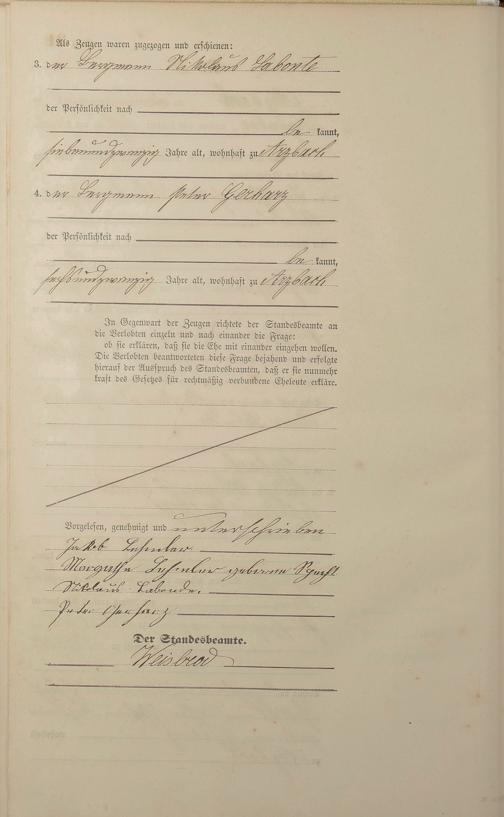 Als Zeugen waren zugezogen und erschienen:
3. der Bergmann Nikolaus Labonte
der Persönlichkeit nach
be kannt,
siebenundzwanzig Jahre alt, wohnhaft zu Arzbach
4. der Bergmann Peter Gerharz
der Persönlichkeit nach
be kannt,
sechsundzwanzig Jahre alt, wohnhaft zu Arzbach
In Gegenwart der Zeugen richtete der Standesbeamte an
die Verlobten einzeln und nach einander die Frage:
ob sie erklären, daß sie die Ehe mit einander eingehen wollen.
Die Verlobten beantworteten diese Frage bejahend und erfolgte
hierauf der Ausspruch des Standesbeamten, daß er sie nunmehr
kraft des Gesetzes für rechtmäßig verbundene Eheleute erkläre.
Vorgelesen, genehmigt und unterschrieben
Jakob
geborene
Nikolaus Labonde.
Peter Gerharz
Der Standesbeamte.
Weisbrod